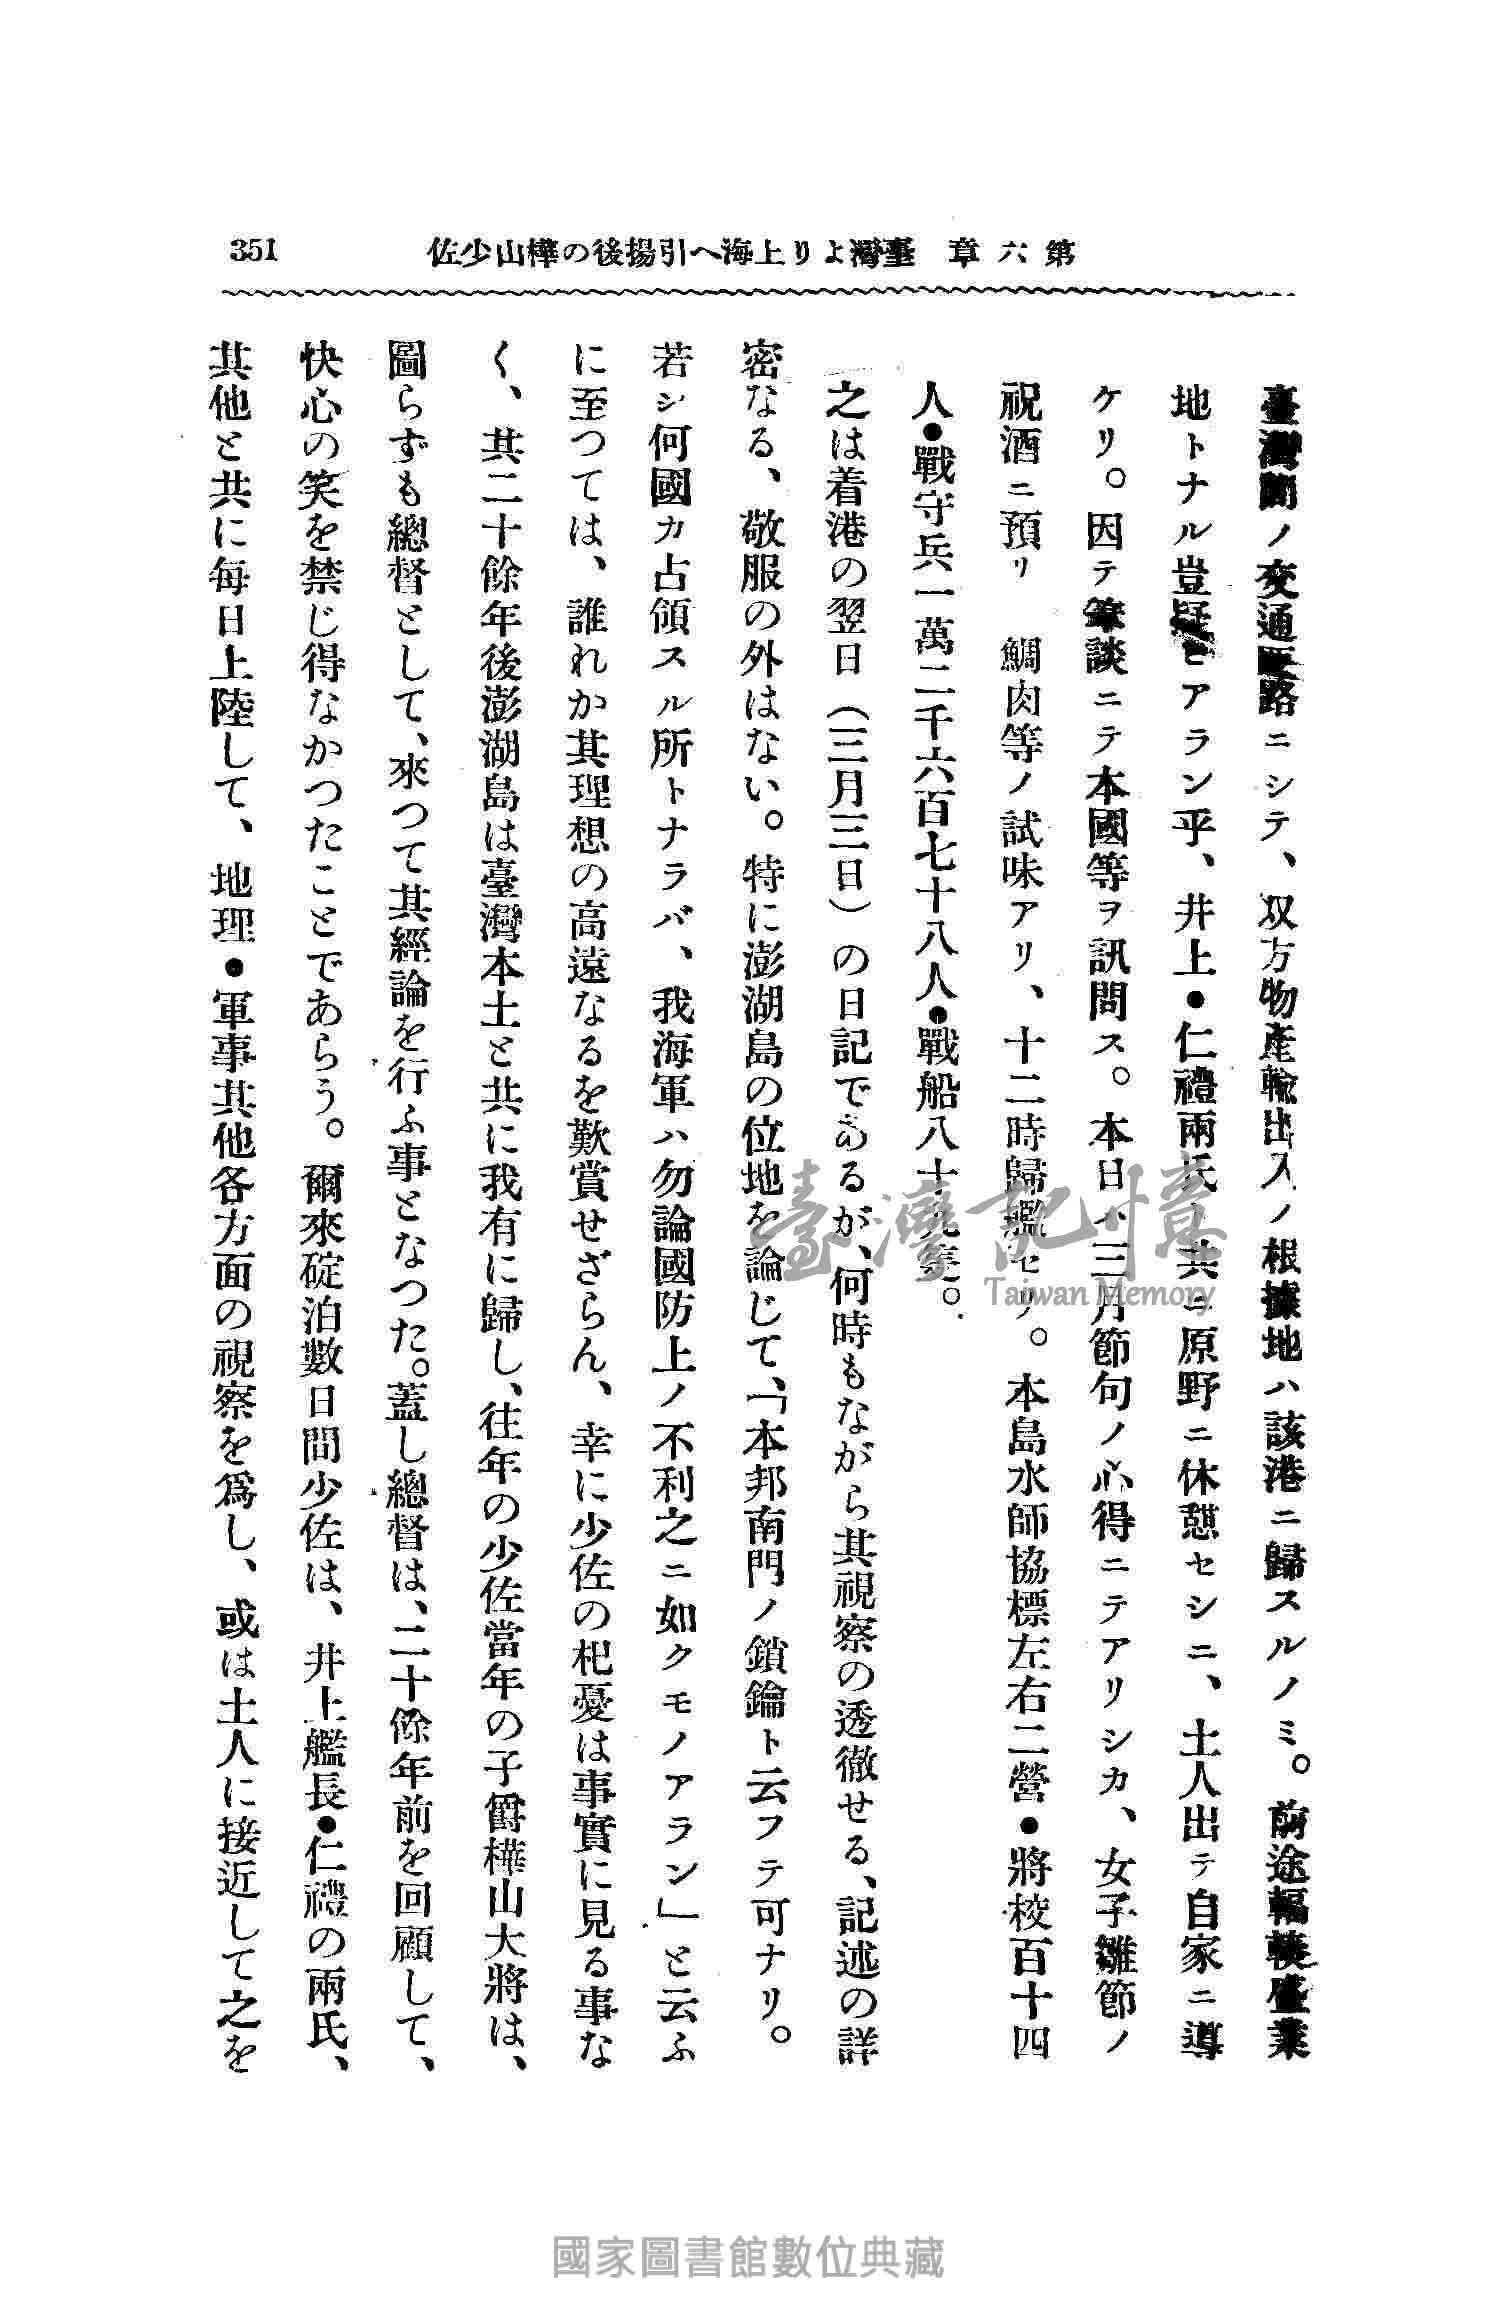 第六章　臺灣より上海へ引揚後の樺山少佐
351
臺灣間ノ交通要路ニシテ、双方物產輸出入ノ根據地ハ該港ニ歸スルノミ。前途輻輳盛業
地トナル豈疑ヒアラン乎、井上●仁禮兩氏ト共ニ原野ニ休憩セシニ、土人出テ自家ニ導
ケリ。因テ筆談ニテ本國等ヲ訊問ス。本日ハ三月節句ノ心得ニテアリシカ、女子雛節ノ
祝酒ニ預リ　鯛肉等ノ試味アリ、十二時歸艦セリ。本島水師協標左右二營●將校百十四
人●戰守兵一萬二千六百七十八人●戰船八十九隻。
之は着港の翌日（三月三日）の日記であるが、何時もながら其視察の透徹せる、記述の詳
密なる、敬服の外はない。特に澎湖島の位地を論じて、「本邦南門ノ鎖鑰ト云フテ可ナリ。
若シ何國カ占領スル所トナラバ、我海軍ハ勿論國防上ノ不利之ニ如クモノアラン」と云ふ
に至つては、誰れか其理想の高遠なるを歎賞せざらん、幸に少佐の杞憂は事實に見る事な
く、其二十餘年後澎湖島は臺灣本土と共に我有に歸し、往年の少佐當年の子爵樺山大將は、
圖らずも總督として、來つて其經論を行ふ事となつた。蓋し總督は、二十餘年前を回顧して、
快心の笑を禁じ得なかつたことであらう。爾來碇泊數日間少佐は、井上艦長●仁禮の兩氏、
其他と共に每日上陸して、地理●軍事其他各方面の視察を爲し、或は土人に接近して之を
臺灣記憶
Taiwan Memory
國家圖書館數位典藏